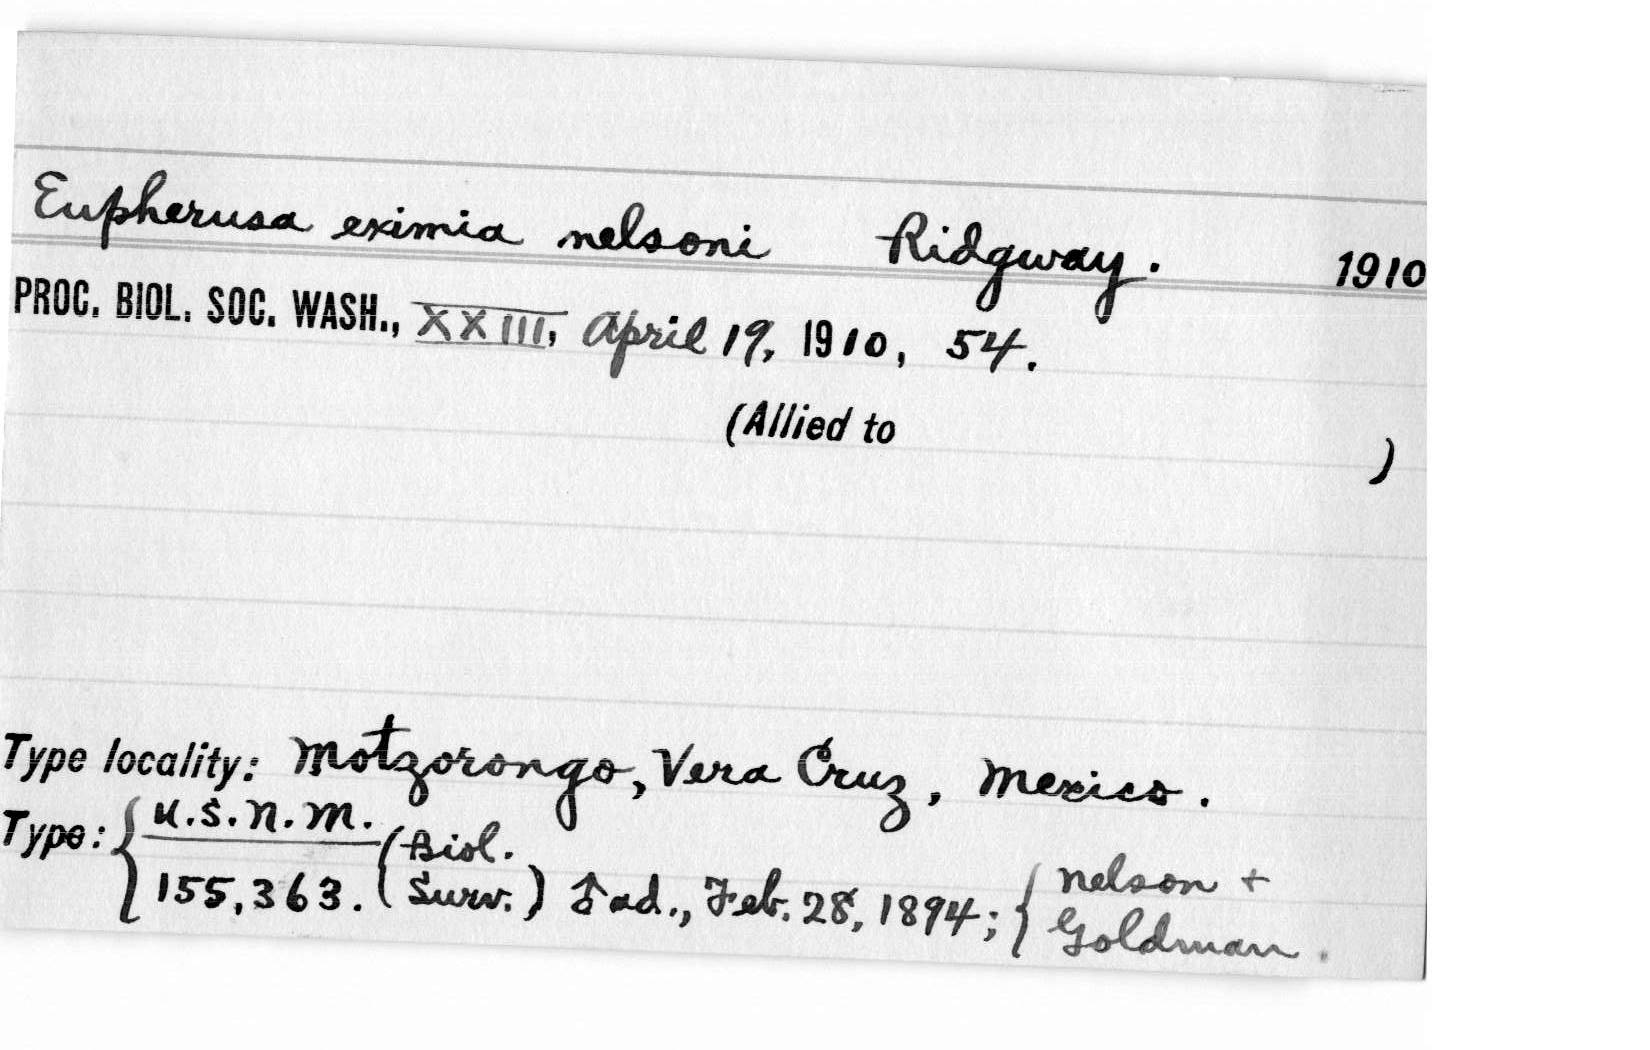 Eupherusa eximia nelsoni Ridgway. 1910
PROC. BIOL. SOC. WASH., XXIII, April 19, 1910, 54.
(Allied to )
Type locality: Motzorongo, Vera Cruz, Mexico.
Type: { U.S.N.M. (Biol. { Nelson +
155,363. Surv.) ad., Feb. 28, 1894; Goldman.